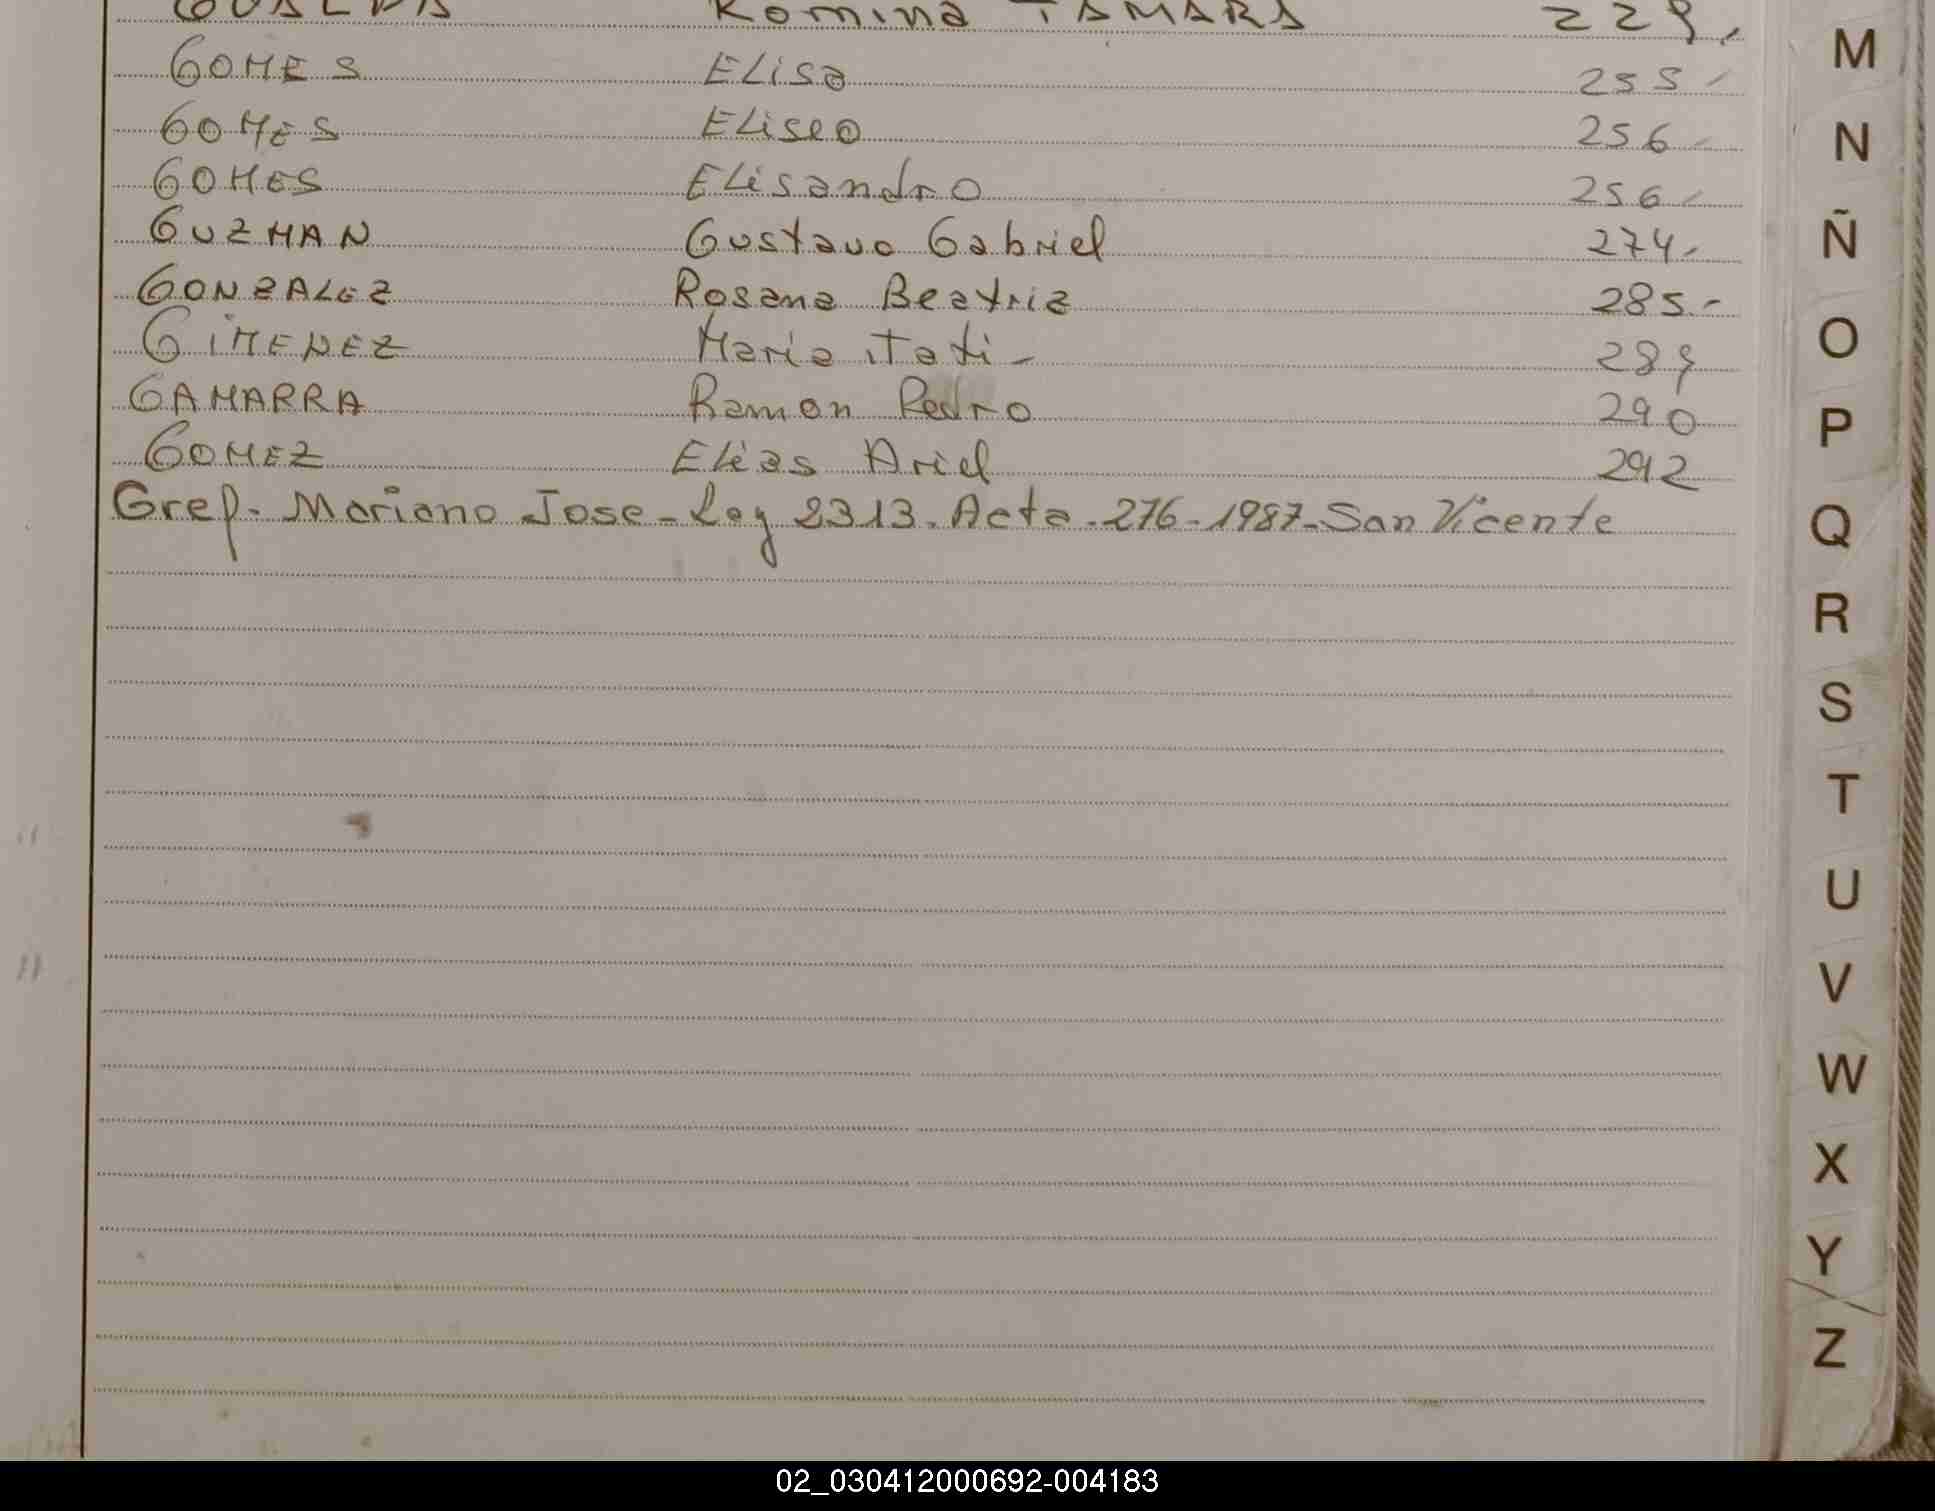 Romina TAMARA 229.
GOMES ELisa 255-
GOMES ELiseo 256-
GOMES ELisandro 256-
GUZMAN Gustavo Gabriel 274-
GONZALEZ Rosana Beatriz 285.-
GIMENEZ Maria itati- 289
GAMARRA Ramon Pedro 290
GOMEZ Elias Ariel 292
Gref. Mariano Jose-Ley 2313. Acta-276-1987-San Vicente
M
N
Ñ
O
P
Q
R
S
T
U
V
W
X
Y
Z
02_030412000692-004183